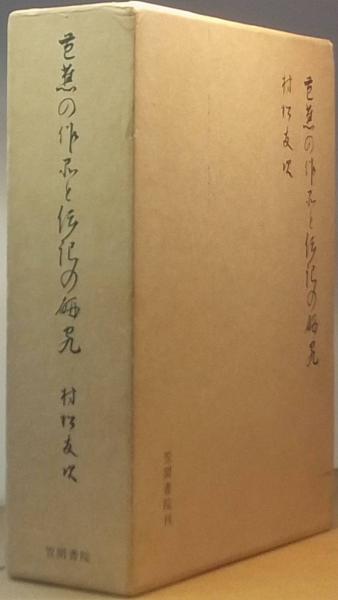 芭蕉の作品と伝記の研究
村松友次
笠間書院
芭蕉の作品と伝記の研究
村松友次
笠間書院刊